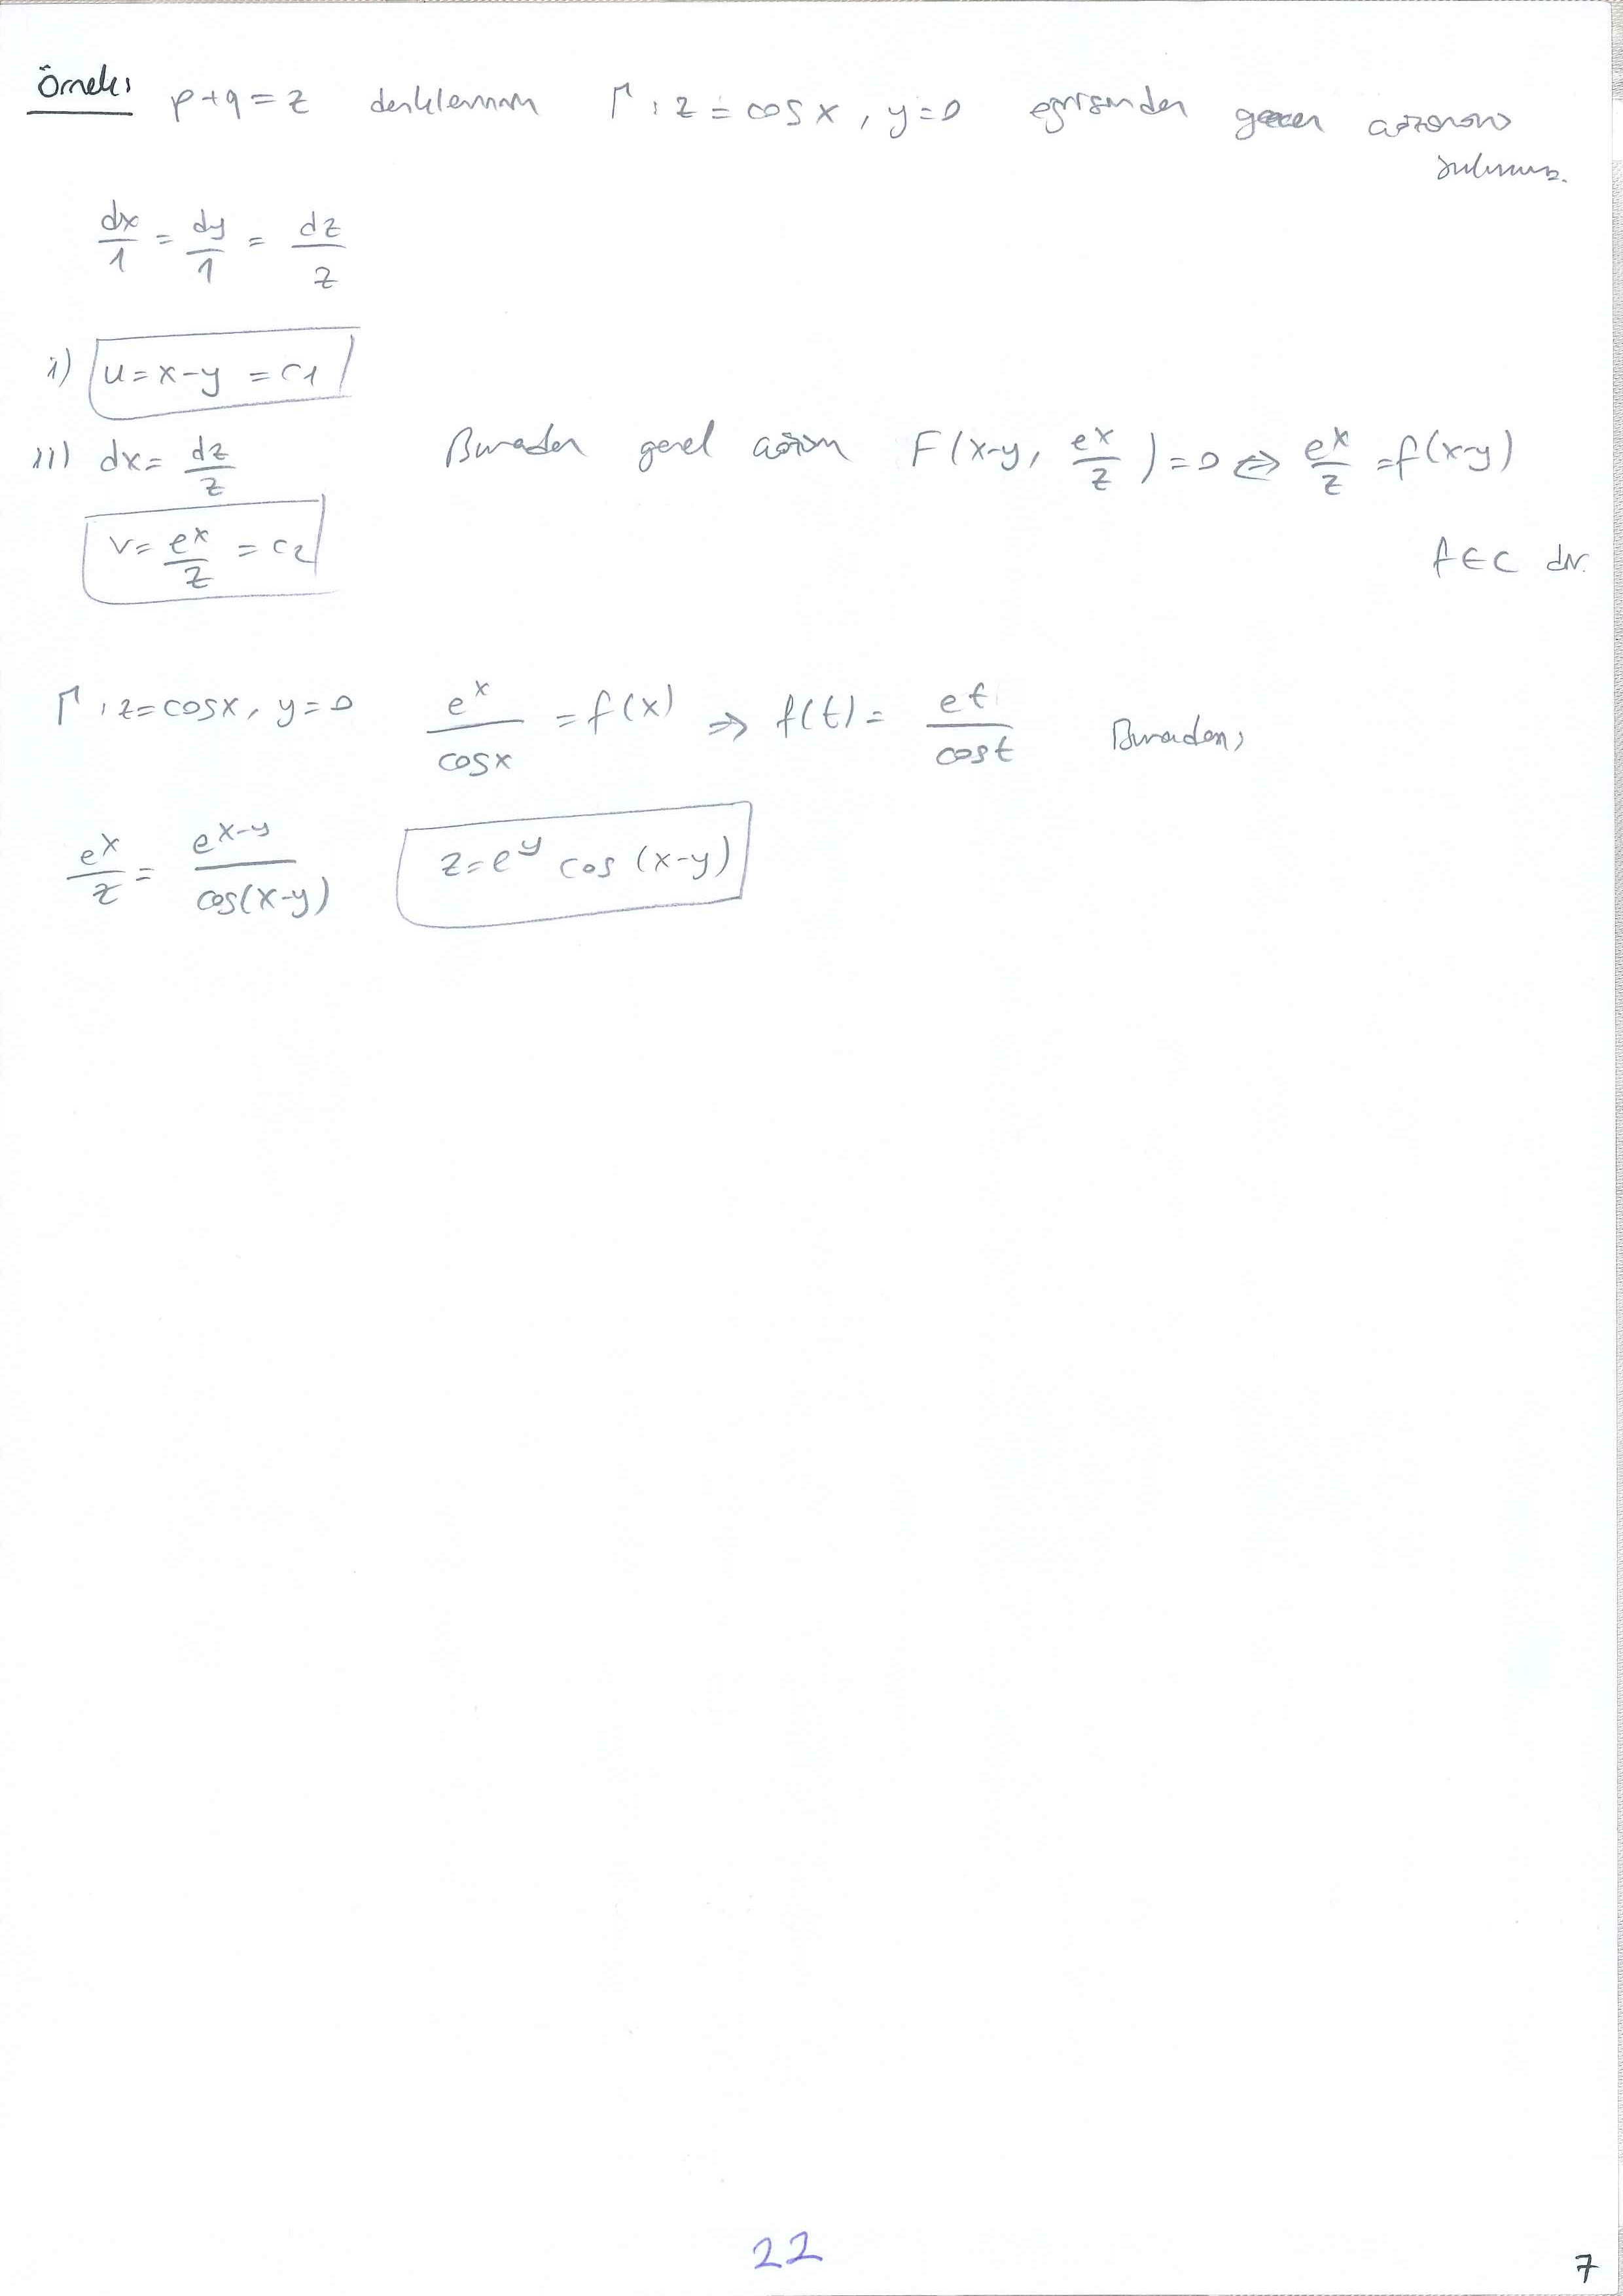 Örnek: p+q=z denkleminin Γ: z=cosx, y=0 eğrisinden geçen çözümünü
bulunuz.
dx/1 = dy/1 = dz/z
i) u=x-y=c1
ii) dx= dz/z Buradan genel çözüm F(x-y, e^x/z)=0 ⇔ e^x/z =f(x-y)
v= e^x/z =c2
f∈C dir.
Γ: z=cosx, y=0 e^x/cosx =f(x) ⇒ f(t)= e^t/cost Buradan,
e^x/z = e^(x-y)/cos(x-y) z=e^y cos(x-y)
22
7